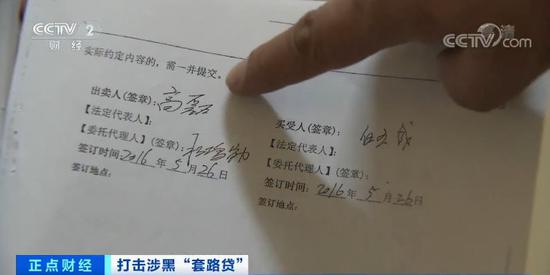 CCTV 2
财经
CCTV.com
实际约定内容的，需一并提交。
出卖人(签章)：高磊
【法定代表人】：
【委托代理人】(签章)：
签订时间：2016 年 5 月 26 日
签订地点：
买受人(签章)：
【法定代表人】：
【委托代理人】(签章)：
签订时间：2016 年 5 月 26 日
签订地点：
正点财经
打击涉黑“套路贷”